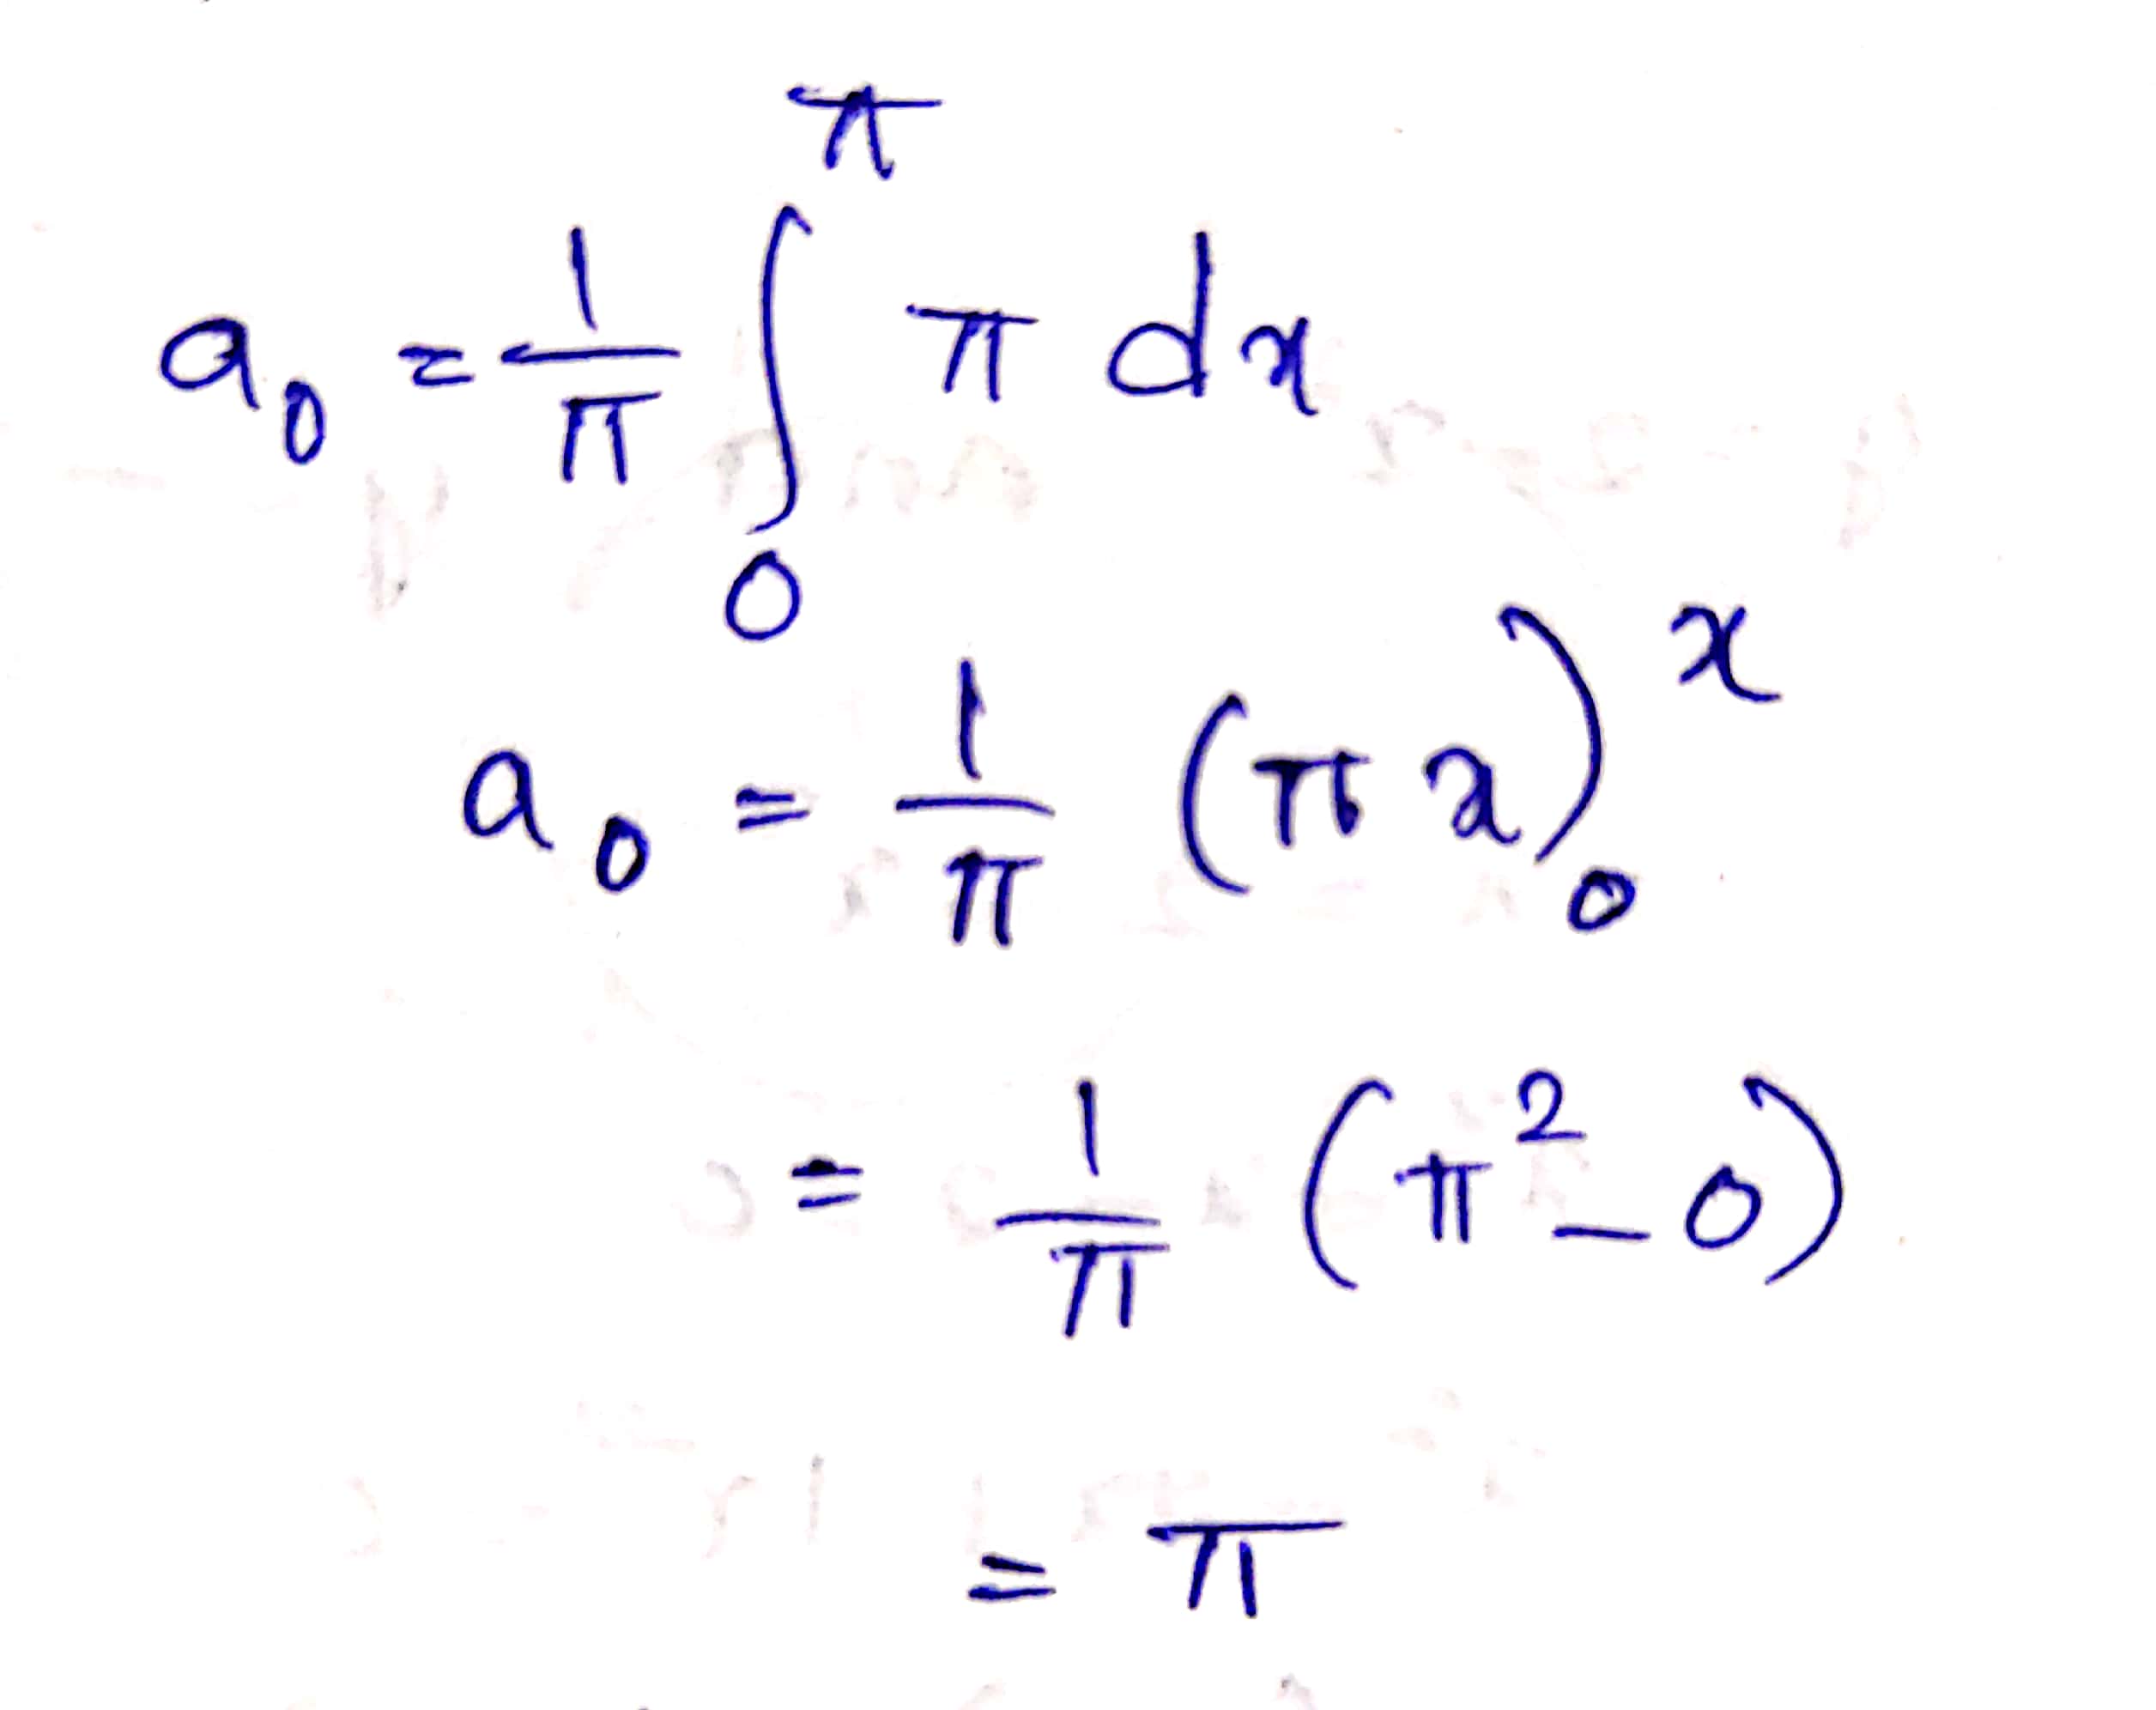 a₀ = 1/π ∫₀^π π dx
a₀ = 1/π (πx)₀^x
= 1/π (π² - 0)
= π